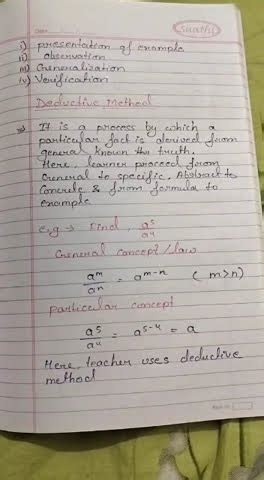 Swathi
i) presentation of example
ii) observation
iii) Generalisation
iv) Verification
Deductive Method
It is a process by which a
particular fact is derived from
general known the truth.
Here, learner proceed from
General to specific, Abstract to
Concrete & from formula to
example
e.g → Find, a⁵/a⁴
General concept/law
aᵐ/aⁿ = aᵐ⁻ⁿ (m>n)
particular concept
a⁵/a⁴ = a⁵⁻⁴ = a
Here, teacher uses deductive
method